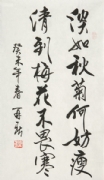 淡如秋菊何妨瘦
清到梅花不畏寒
癸未年春